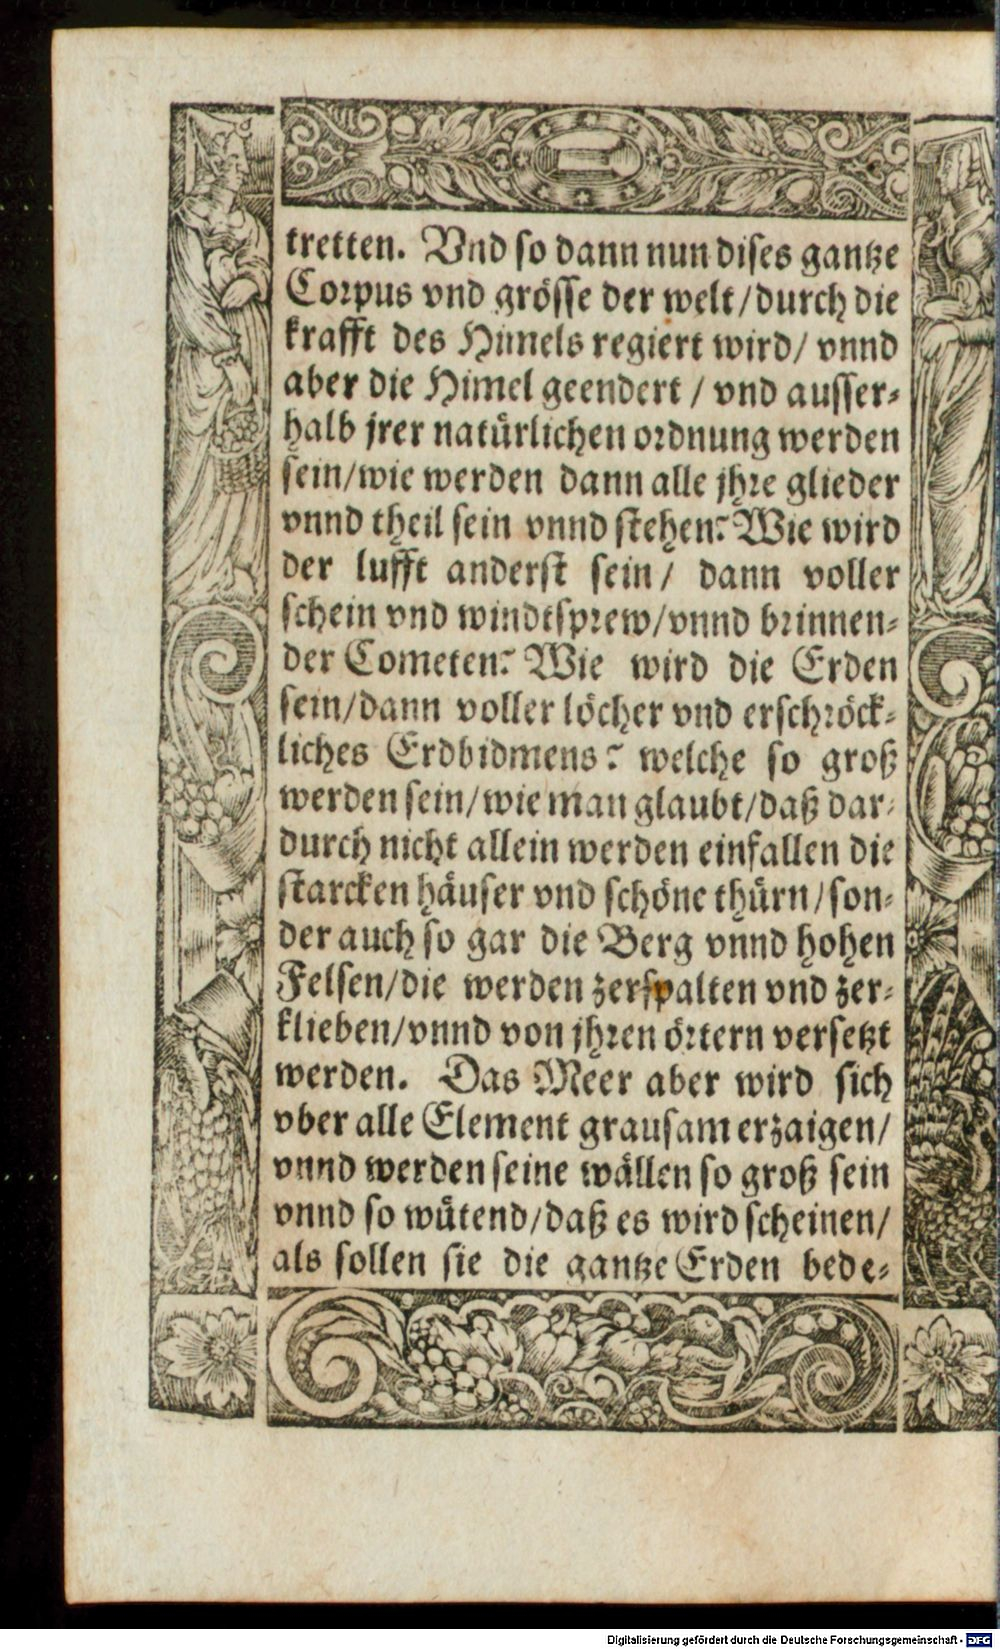 tretten. Vnd so dann nun dises gantze
Corpus vnd grösse der welt/durch die
krafft des Himels regiert wird/ vnnd
aber die Himel geendert / vnd ausser-
halb jrer natürlichen ordnung werden
sein/wie werden dann alle jhre glieder
vnnd theil sein vnnd stehen? Wie wird
der lufft anderst sein/ dann voller
schein vnd windtsprew/vnnd brinnen-
der Cometen? Wie wird die Erden
sein/dann voller löcher vnd erschröck-
liches Erdbidmens? welche so groß
werden sein/wie man glaubt/daß dar-
durch nicht allein werden einfallen die
starcken häuser vnd schöne thürn/son-
der auch so gar die Berg vnnd hohen
Felsen/die werden zerspalten vnd zer-
klieben/vnnd von jhren örtern versetzt
werden. Das Meer aber wird sich
vber alle Element grausam erzaigen/
vnnd werden seine wällen so groß sein
vnnd so wütend/daß es wird scheinen/
als sollen sie die gantze Erden bede-
Digitalisierung gefördert durch die Deutsche Forschungsgemeinschaft - DFG